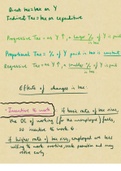 Direct tax: tax on Y
Indirect Tax: tax on expenditure
Progressive Tax = as Y ↑, a larger % of Y is paid
Proportional Tax = % of Y paid in tax is constant
Regressive Tax = as Y ↑, a smaller % of Y is paid
Effects of changes in tax
- Incentive to work : if lower rate of inc tax,
the OC of working (for the unemployed) falls,
so incentive to work ↑
if higher rate of inc tax, employed are less
willing to work overtime, seek promotion and may
retire early